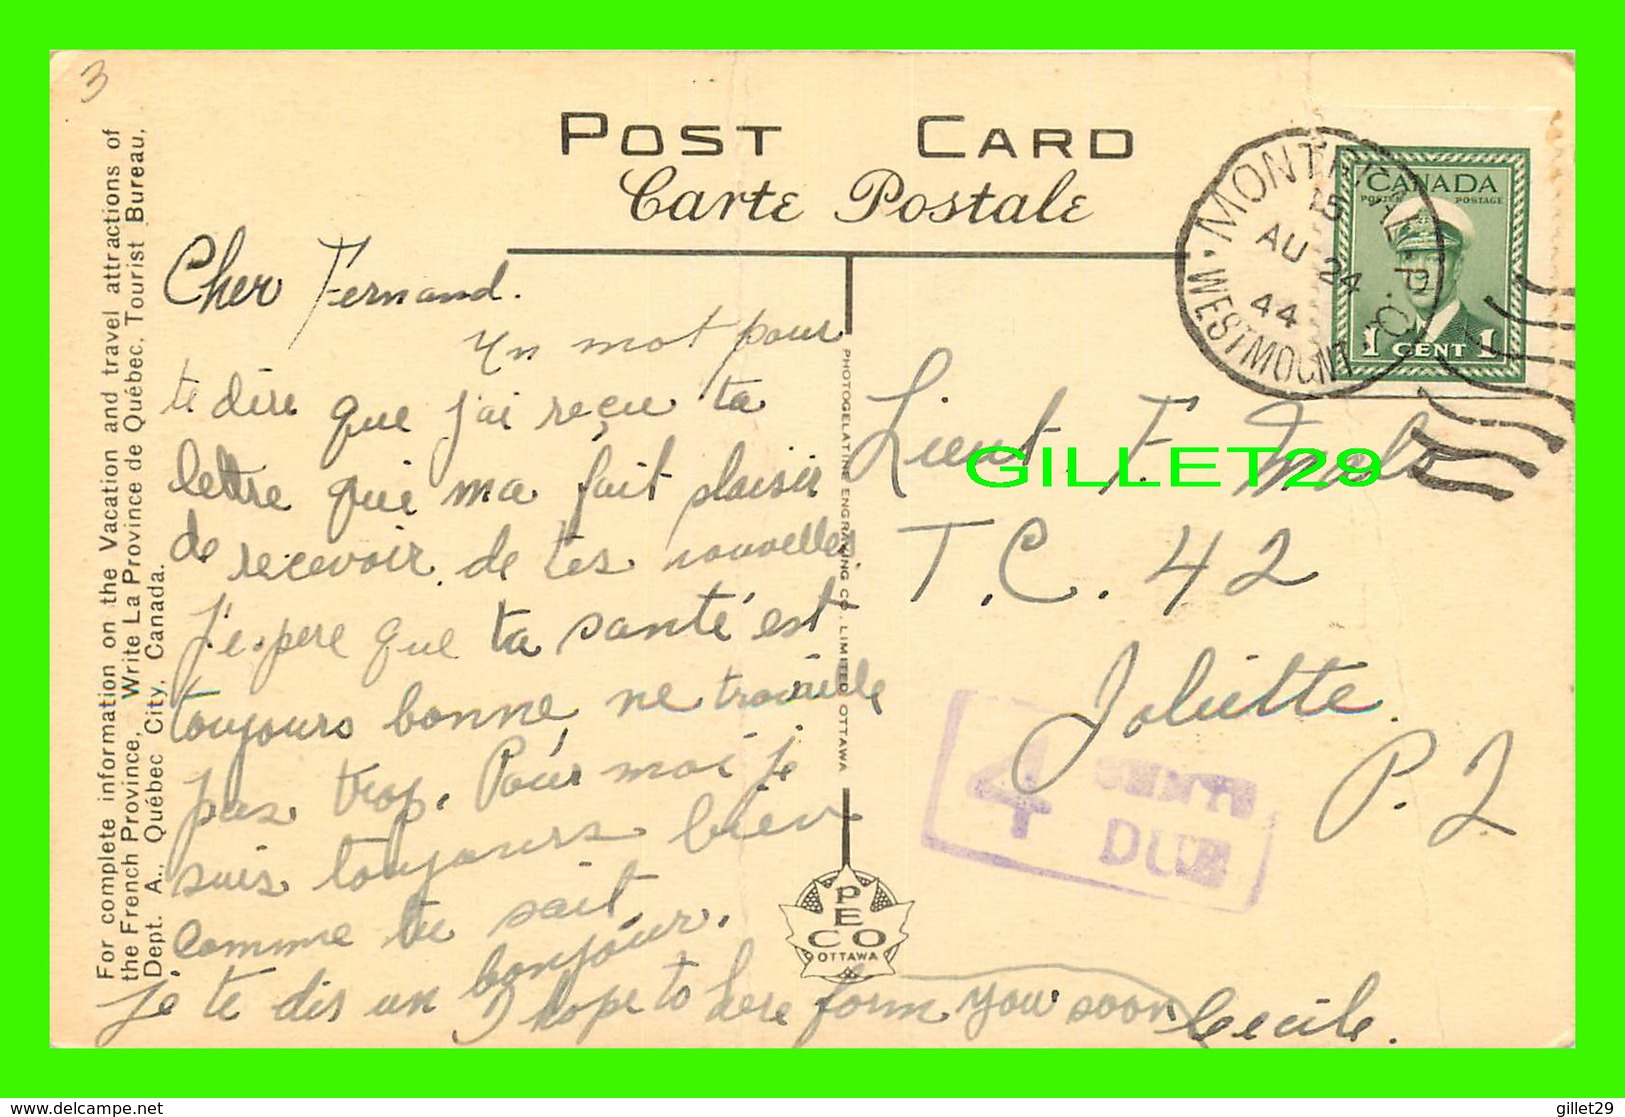 3
POST CARD
Carte Postale
MONTREAL P.Q.
15
AU 24
44
WESTMOUNT
CANADA
POSTES POSTAGE
1 CENT 1
For complete information on the Vacation and travel attractions of
the French Province, Write La Province de Québec, Tourist Bureau,
Dept. A., Québec City, Canada.
Cher Fernand.
Un mot pour
te dire que j'ai reçu ta
lettre qui ma fait plaisir
de recevoir de tes nouvelles
J'espere que ta santé est
toujours bonne ne travaille
pas trop. Pour moi je
suis toujours bien
comme tu sait,
je te dis un bonjour.
I hope to here form you soon
Cecile.
PHOTOGELATINE ENGRAVING CO. LIMITED OTTAWA
PECO
OTTAWA
Lieut. F.
T.C. 42
Joliette.
P.Q
4 CENTS
DUE
GILLET29
delcampe.net
gillet29